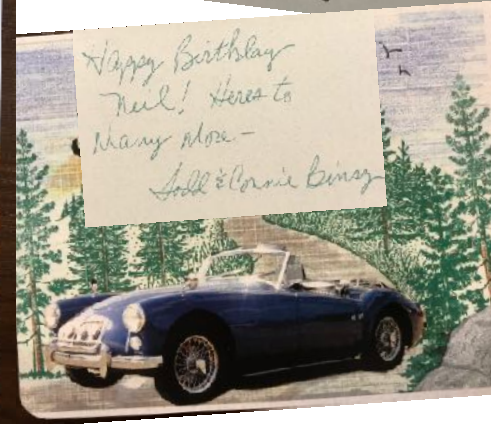 Happy Birthday
Neil! Heres to
Many More –
Todd & Connie